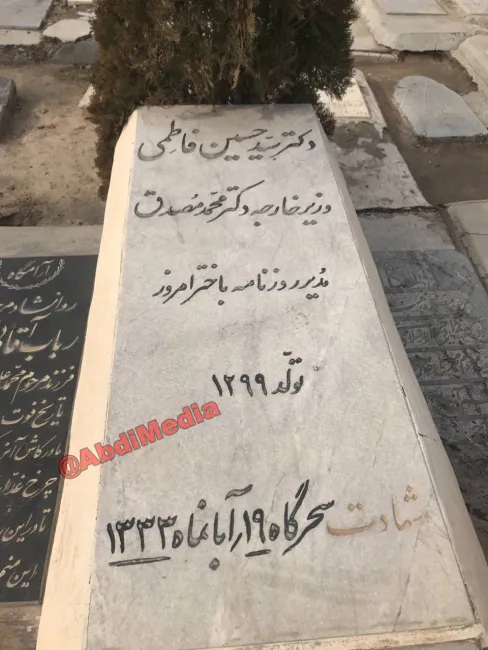 دکتر سید حسین فاطمی
وزیر خارجه دکتر محمد مصدق
مدیر روزنامه باختر امروز
تولّد ۱۲۹۹
شهادت سحرگاه ۱۹ آبانماه ۱۳۳۳
@AbdiMedia
آرامگاه
روانشاد
رباب آقا
فرزند مرحوم محمد
تاریخ فوت
مادر کاش
چرخ
این منم